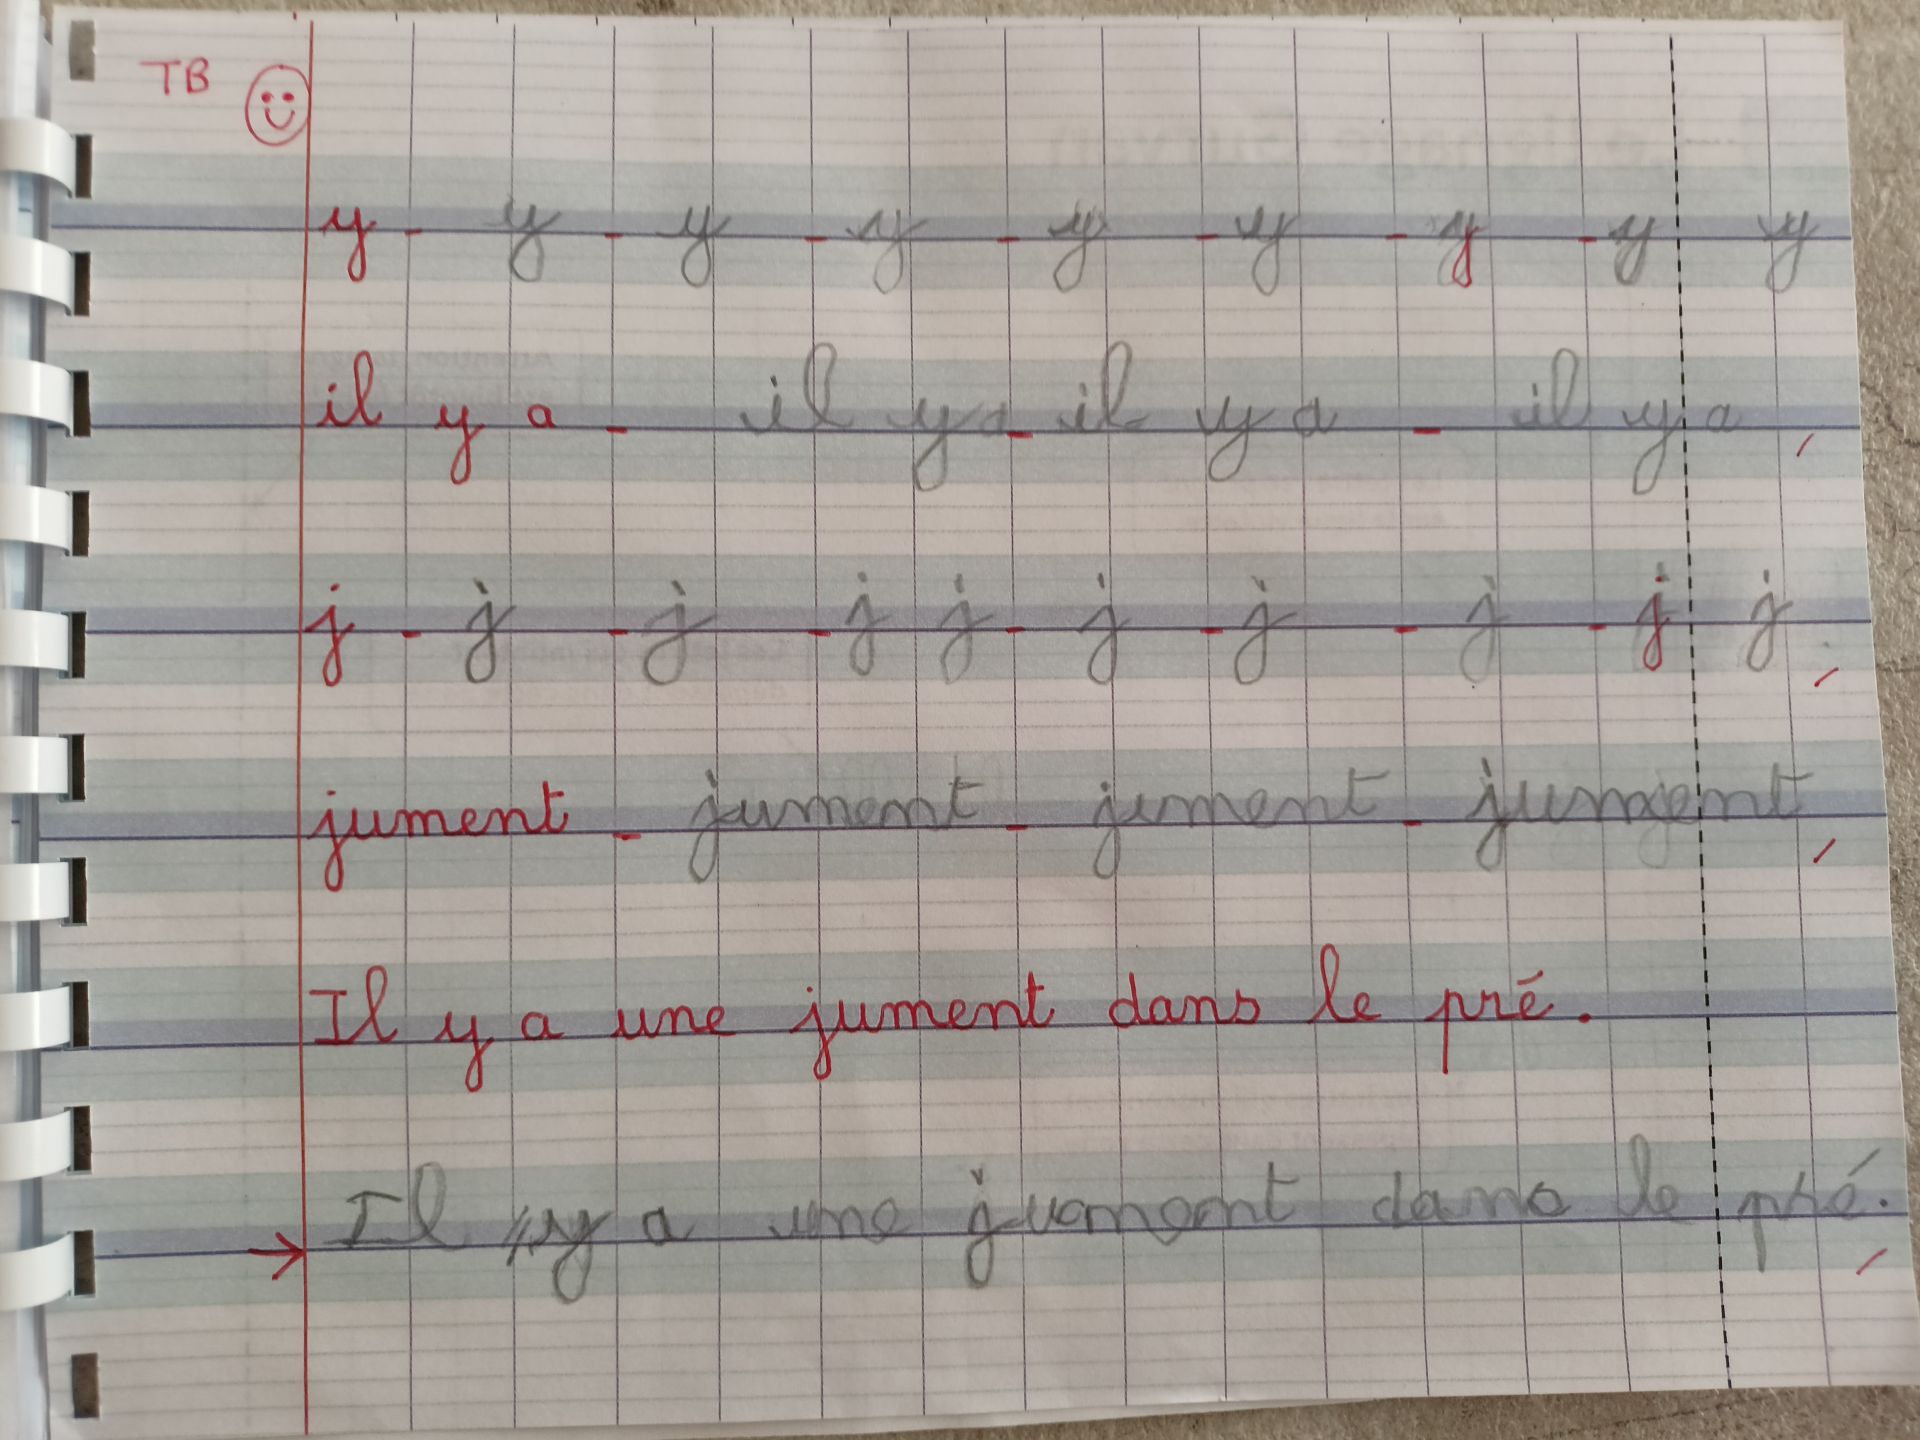 TB
y - y - y - y - y - y - y - y y
il y a - il y a - il y a - il y a
j - j - j - j j - j - j - j - j j
jument - jument - jument - jument
Il y a une jument dans le pré.
Il y a une jument dans le pré.